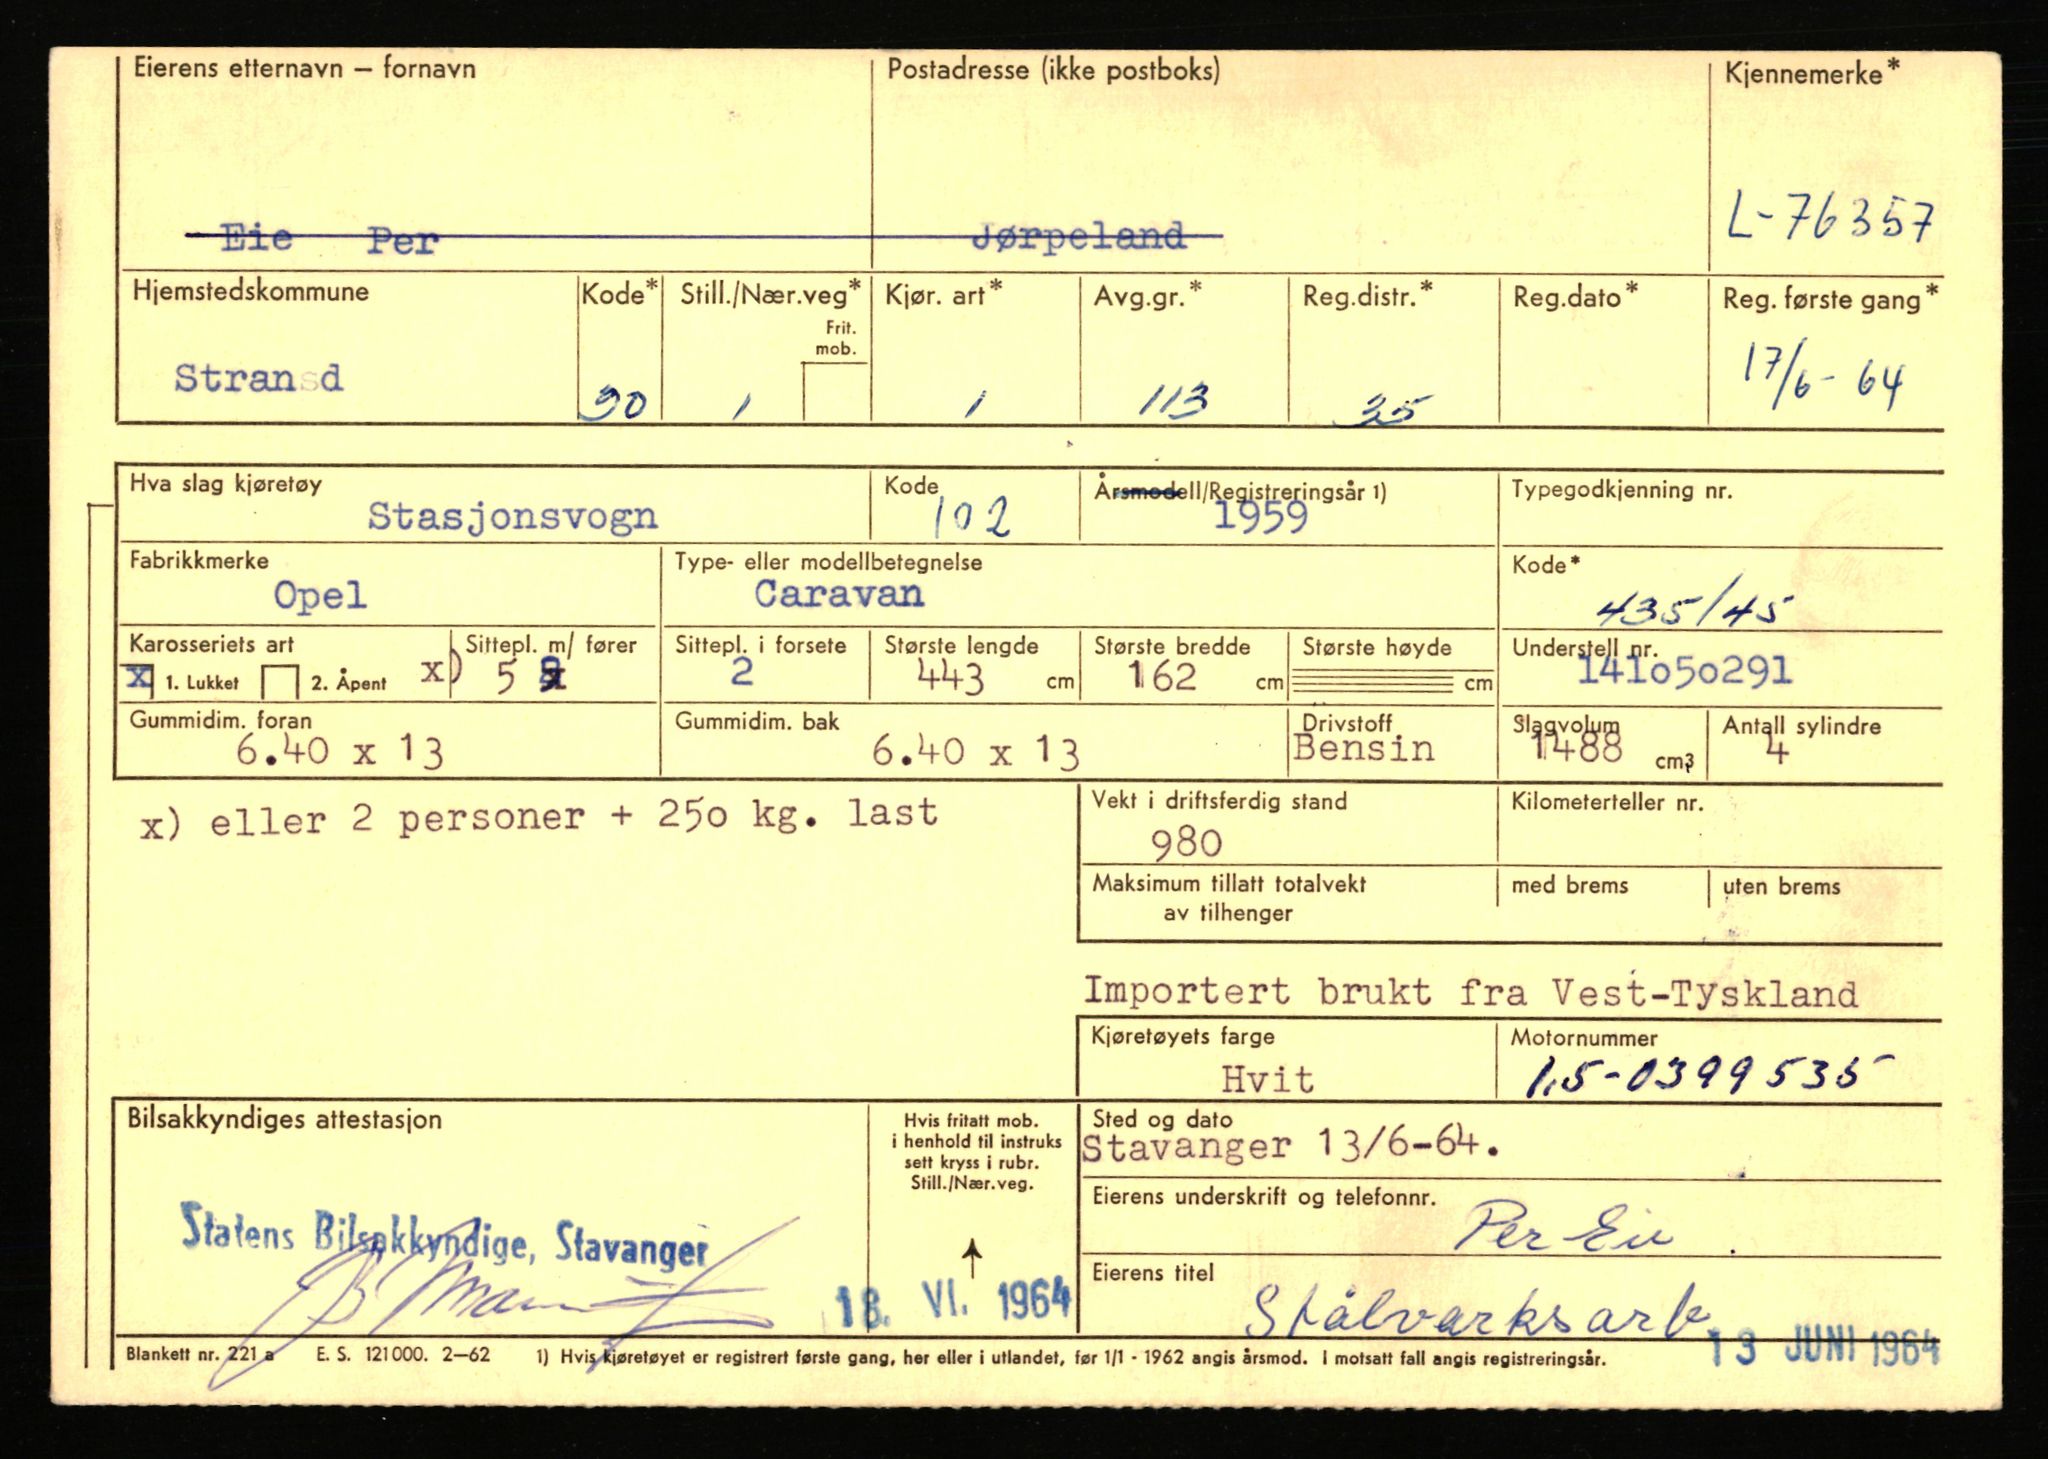 Eierens etternavn – fornavn Postadresse (ikke postboks) Kjennemerke*
Eie Per Jørpeland L-76357
Hjemstedskommune Kode* Still./Nær.veg* Kjør. art* Avg.gr.* Reg.distr.* Reg.dato* Reg. første gang*
Frit. mob.
Stransd 30 1 1 113 35 17/6- 64
Hva slag kjøretøy Kode Årsmodell/Registreringsår 1) Typegodkjenning nr.
Stasjonsvogn 102 1959
Fabrikkmerke Type- eller modellbetegnelse Kode*
Opel Caravan 435/45
Karosseriets art Sittepl. m/ fører Sittepl. i forsete Største lengde Største bredde Største høyde Understell nr.
x 1. Lukket 2. Åpent x) 5 2 443 cm 162 cm cm 141050291
Gummidim. foran Gummidim. bak Drivstoff Slagvolum Antall sylindre
6.40 x 13 6.40 x 13 Bensin 1488 cm3 4
x) eller 2 personer + 250 kg. last
Vekt i driftsferdig stand Kilometerteller nr.
980
Maksimum tillatt totalvekt av tilhenger med brems uten brems
Importert brukt fra Vest-Tyskland
Kjøretøyets farge Motornummer
Hvit 1,5-0399535
Bilsakkyndiges attestasjon
Hvis fritatt mob.
i henhold til instruks
sett kryss i rubr.
Still./Nær.veg.
Sted og dato
Stavanger 13/6-64.
Eierens underskrift og telefonnr.
Per Eie
Statens Bilsakkyndige, Stavanger
18. VI. 1964
Eierens titel
Stålvarksarb
13 JUNI 1964
Blankett nr. 221 a E. S. 121000. 2–62 1) Hvis kjøretøyet er registrert første gang, her eller i utlandet, før 1/1 - 1962 angis årsmod. I motsatt fall angis registreringsår.